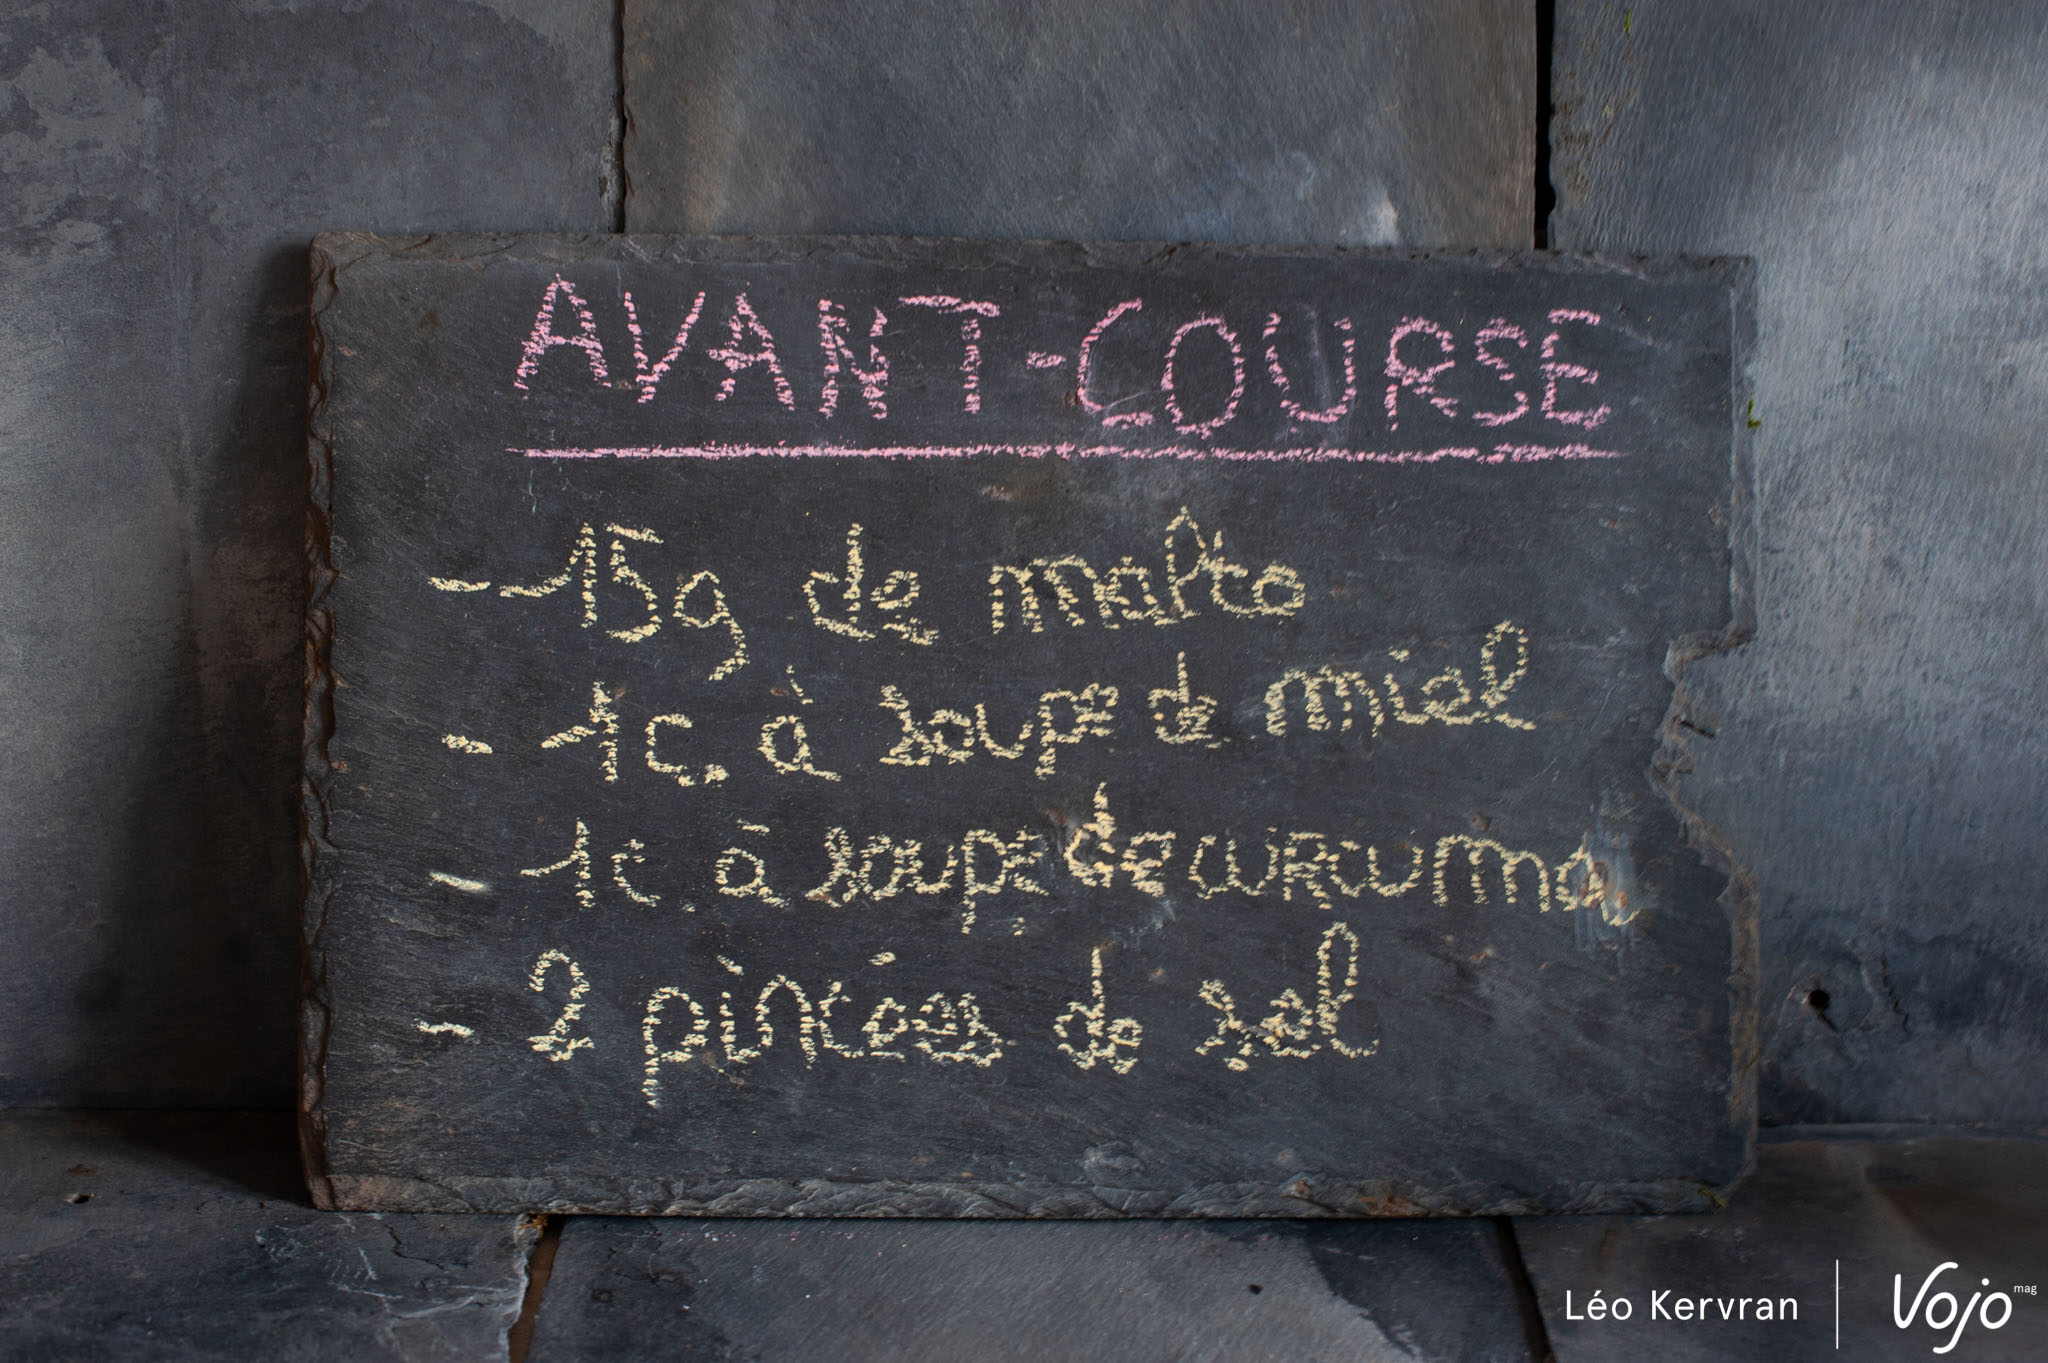 AVANT-COURSE
- 15g de malto
- 1c. à soupe de miel
- 1c. à soupe de curcuma
- 2 pincées de sel
Léo Kervran
Vojo mag